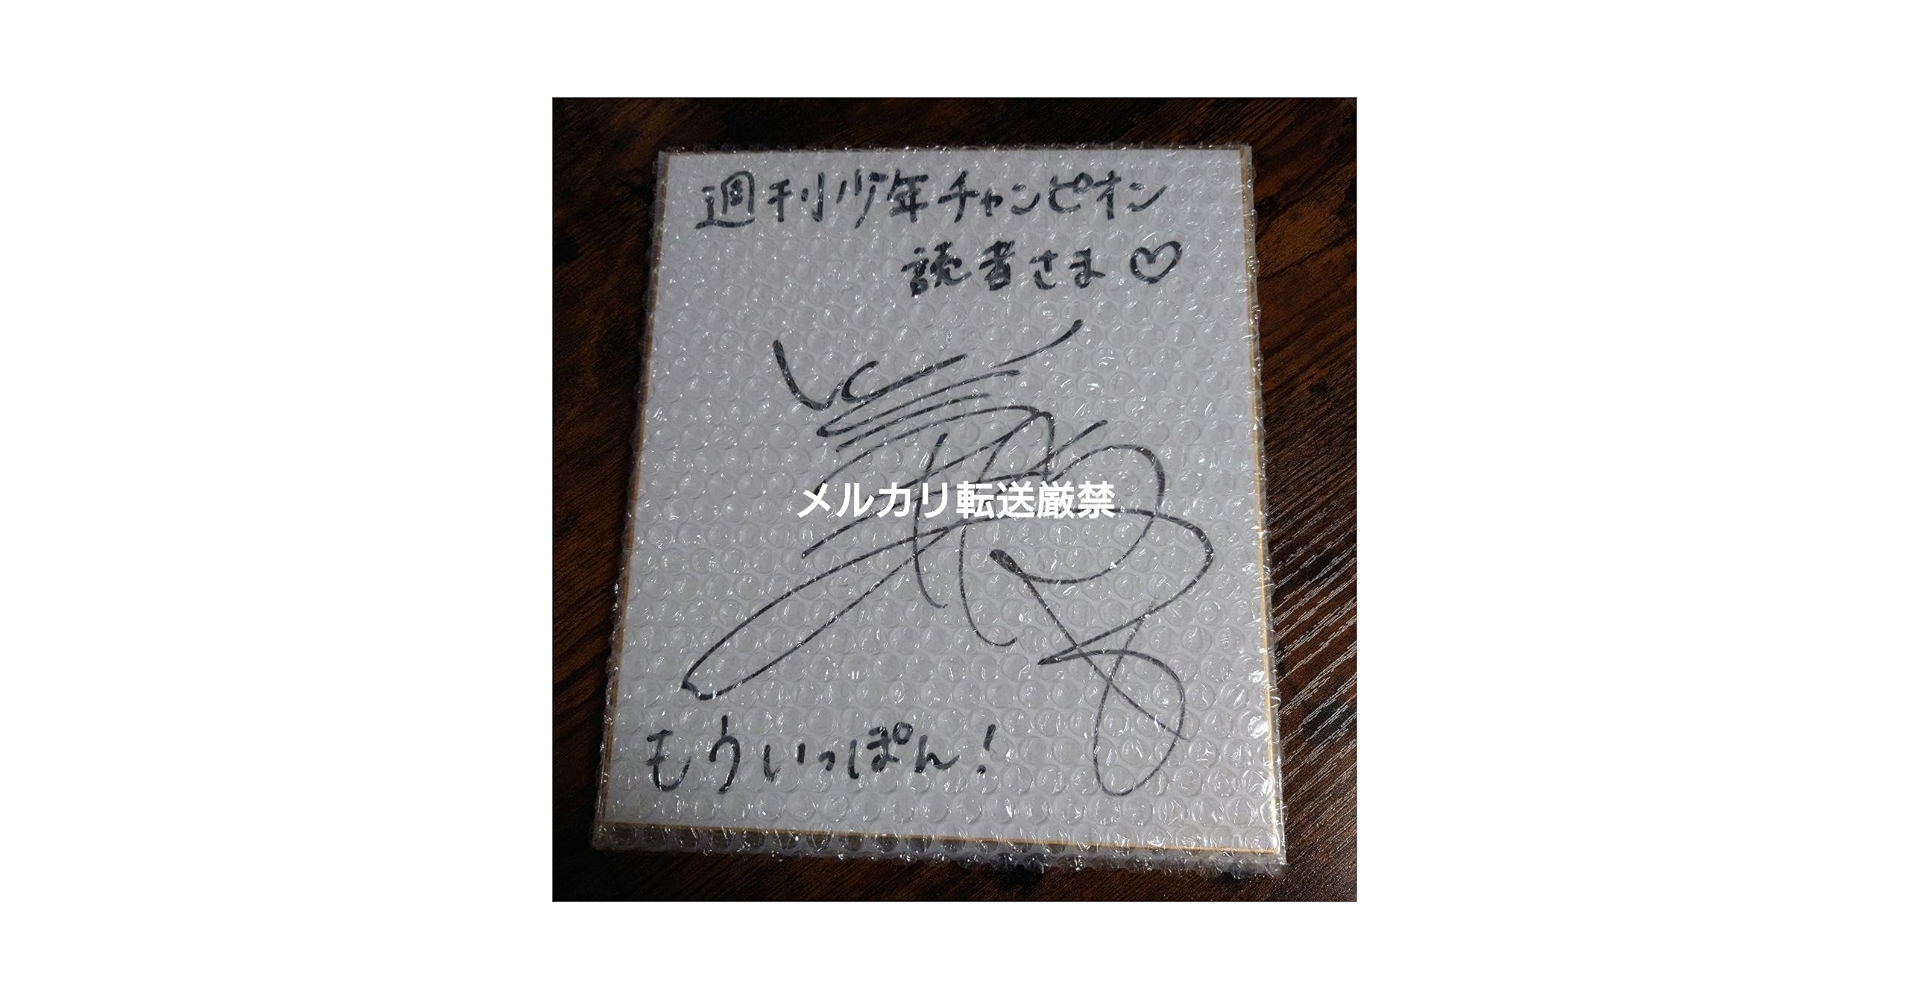 週刊少年チャンピオン
読者さま♡
メルカリ転送厳禁
もういっぽん!